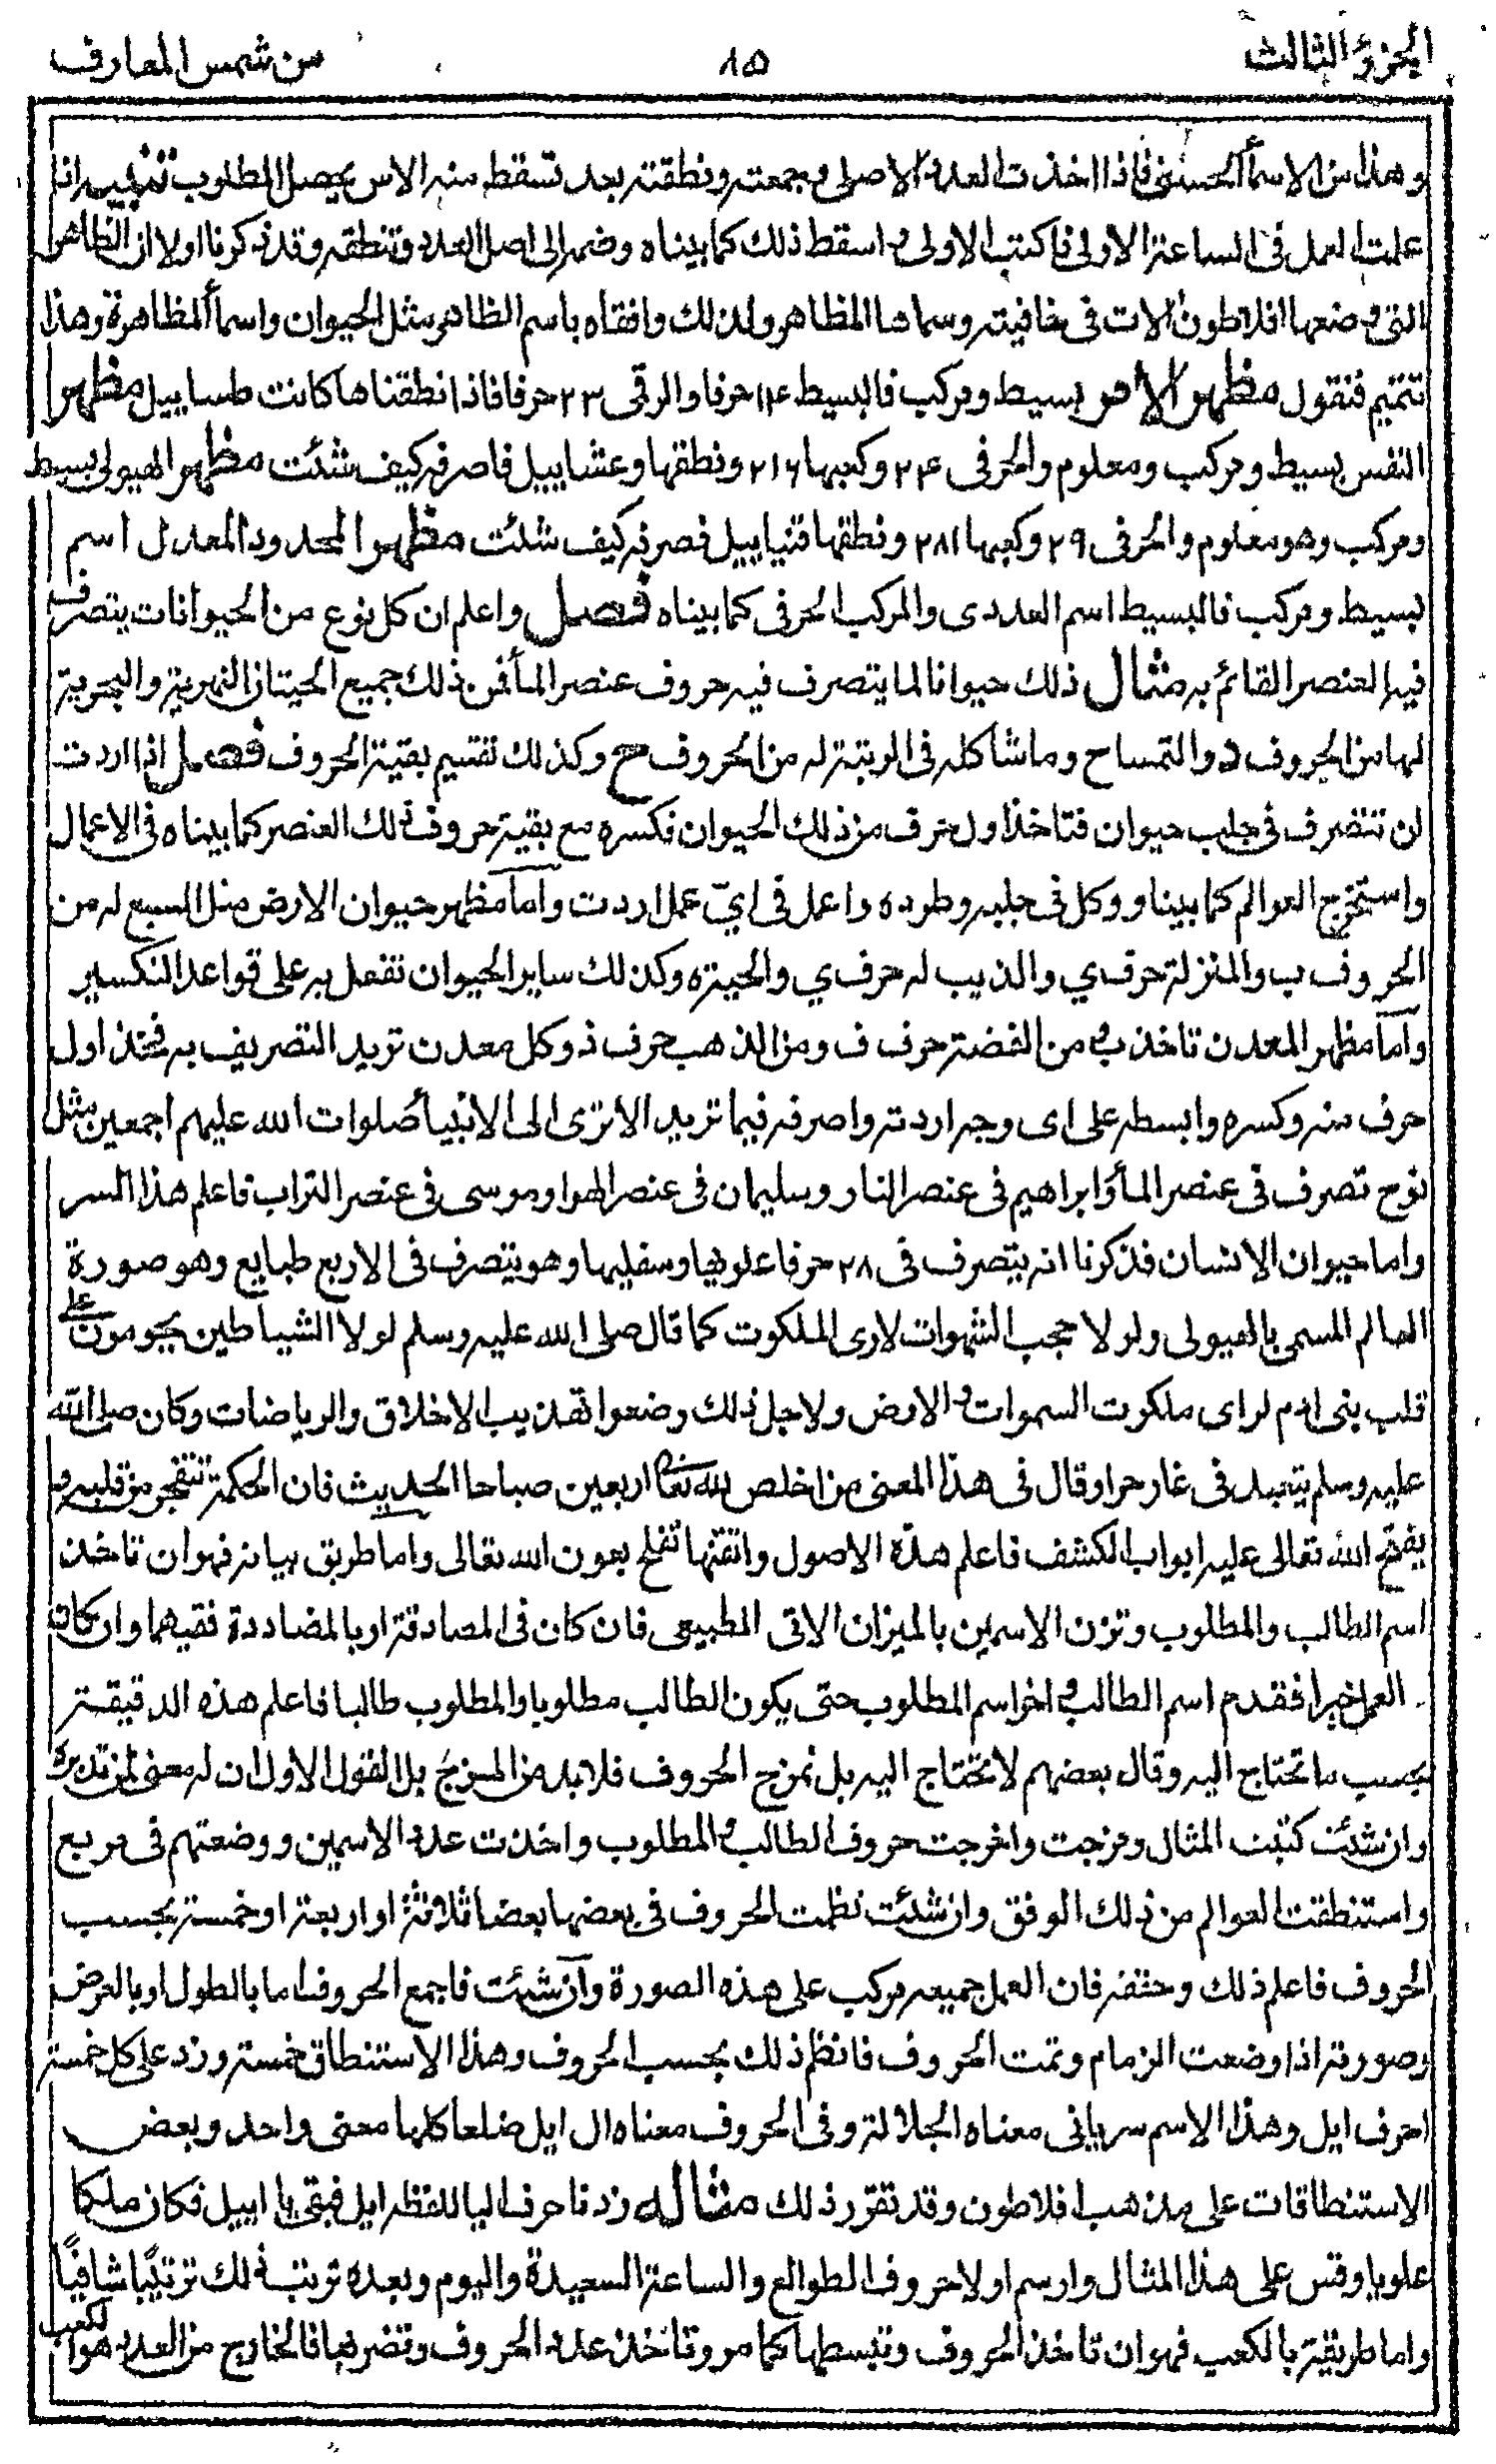 الجزؤ الثالث
٨٥
من شمس المعارف
وهذا من الاسمأ الحسنى فاذا اخذت العدد الاصلى وجمعته ونطقته بعد تسقط منه الاس يحصل المطلوب تنبيه اذا
علمت العمل فى الساعة الاولى فاكتب الاولى و اسقط ذلك كما بيناه وضمه الى اصل العدد وتنطقه وقد ذكرنا اولا ان الظاهر
التى وضعها افلاطون الات فى خافيته وسماها المظاهر ولذلك وافقاه باسم الظاهر مثل الحيوان واسمأ المظاهرة وهذا
تتميم فنقول مظهر الا هو بسيط ومركب فالبسيط ١١٤ حرفا والرقى ٢٣ حرفا فاذا نطقناها كانت طساييل مظهر
النفس بسيط ومركب ومعلوم والحرفى ٢٤ وكعبها ٢١٦ ونطقها وعشاييل فاصرفه كيف شئت مظهر الهيولى بسيط
ومركب وهو معلوم والحرفى ٢٩ وكعبها ٢٨١ ونطقها قنياييل فصرفه كيف شئت مظهر المحدود المعدل اسم
بسيط ومركب فالبسيط اسم العددى والمركب الحرفى كما بيناه فصل واعلم ان كل نوع من الحيوانات يتصرف
فيه العنصر القائم به مثال ذلك حيوانا لما يتصرف فيه حروف عنصر المأ فمن ذلك جميع الحيتان النهرية والبحرية
لها من الحروف د والتمساح وما شاكله فى الرتبة له من الحروف ح وكذلك تقسيم بقية الحروف فصل اذا اردت
ان تتصرف فى جلب حيوان فتاخذ اول حرف من ذلك الحيوان فكسره مع بقية حروف ذلك العنصر كما بيناه فى الاعمال
واستخرج العوالم كما بينا ووكل فى جلبه وطرده واعمل فى اىّ عمل اردت واما مظهر حيوان الارض مثل السبع له من
الحروف ب والمنزلة حرف ي والذيب له حرف ي والحية ه وكذلك ساير الحيوان تفعل به على قواعد التكسير
واما مظهر المعدن تاخذ من الفضة حرف ف ومن الذهب حرف ذ وكل معدن تريد التصريف به فخذ اول
حرف منه وكسره وابسطه على اى وجه اردته واصرفه فيما تريد الا ترى الى الانبيأ صلوات الله عليهم اجمعين مثل
نوح تصرف فى عنصر المأ وابراهيم فى عنصر النار وسليمان فى عنصر الهوا وموسى فى عنصر التراب فاعلم هذا السر
واما حيوان الانسان فذكرنا انه يتصرف فى ٢٨ حرفا علويها وسفليها وهو يتصرف فى الاربع طبايع وهو صورة
العالم المسمى بالهيولى ولولا حجب الشهوات لارى الملكوت كما قال صلى الله عليه وسلم لولا الشياطين يحومون على
قلب بنى ادم لراى ملكوت السموات والارض ولاجل ذلك وضعوا تهذيب الاخلاق والرياضات وكان صلى الله
عليه وسلم يتعبد فى غار حرا وقال فى هذا المعنى من اخلص لله تعا اربعين صباحا الحديث فان الحكمة تتفجر من قلبه و
يفتح الله تعالى عليه ابواب الكشف فاعلم هذه الاصول واتقنها تفلح بعون الله تعالى واما طريق بيانه فهو ان تاخذ
اسم الطالب والمطلوب وتزن الاسمين بالميزان الاتى الطبيعى فان كان فى المصادقة او بالمضاددة فقيهما وان كان
العمل خيرا فقدم اسم الطالب و اخر اسم المطلوب حتى يكون الطالب مطلوبا والمطلوب طالبا فاعلم هذه الدقيقة
بحسب ما تحتاج اليه وقال بعضهم لا تحتاج اليه بل تمزج الحروف فلا بد من المزج بل القول الاول ان له معنى لمن تدبره
وان شئت كتبت المثال ومزجت واخرجت حروف الطالب و المطلوب واخذت عدد الاسمين ووضعتهم فى مربع
واستنطقت العوالم من ذلك الوفق وان شئت نظمت الحروف فى بعضها بعضا ثلاثة او اربعة او خمسة بحسب
الحروف فاعلم ذلك وحققه فان العمل جميعه مركب على هذه الصورة وان شئت فاجمع الحروف اما بالطول او بالعرض
وصورته اذا وضعت الزمام وتمت الحروف فانظم ذلك بحسب الحروف وهذا الاستنطاق خمسة وزد على كل خمسة
احرف ايل وهذا الاسم سريانى معناه الجلالة وفى الحروف معناه ال ايل ضلعا كلها معنى واحد وبعض
الاستنطاقات على مذهب افلاطون وقد تقرر ذلك مثاله زدنا حرف اليا للفظه ايل فبقى يا اييل فكان ملكا
علويا وقس على هذا المثال وارسم اولا حروف الطوالع والساعة السعيدة واليوم وبعده ترتب ذلك ترتيبًا شافيًا
واما طريقة بالكعب فهو ان تاخذ الحروف وتبسطها كما مر وتاخذ عدد الحروف وتضربها فالخارج من العدد هو الكعب